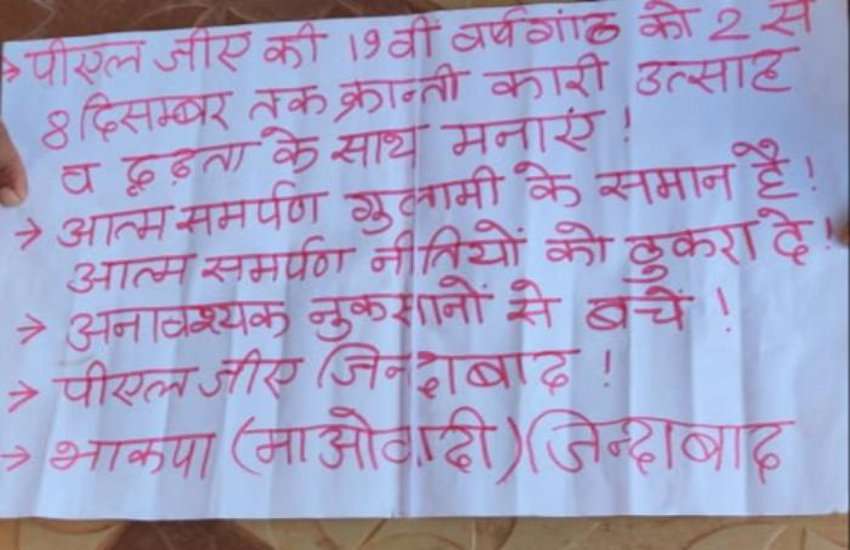 → पीएल जीए की 19वीं वर्षगांठ को 2 से
8 दिसम्बर तक क्रान्ती कारी उत्साह
व दृढ़ता के साथ मनाएं!
→ आत्म समर्पण गुलामी के समान है!
आत्म समर्पण नीतियों को ठुकरा दे!
→ अनावश्यक नुकसानों से बचें!
→ पीएल जीए जिन्दाबाद!
→ भाकपा (माओवादी) जिन्दाबाद